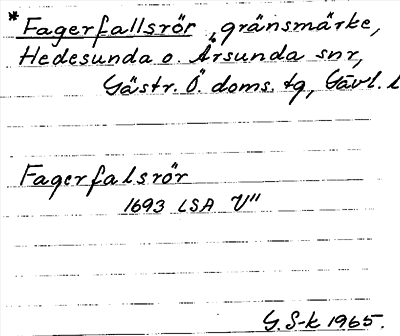 *Fagerfallsrör, gränsmärke,
Hedesunda o. Årsunda snr,
Gästr. Ö. doms. tg, Gävl. l
Fagerfalsrör
1693 LSA V"
G. S-k 1965.